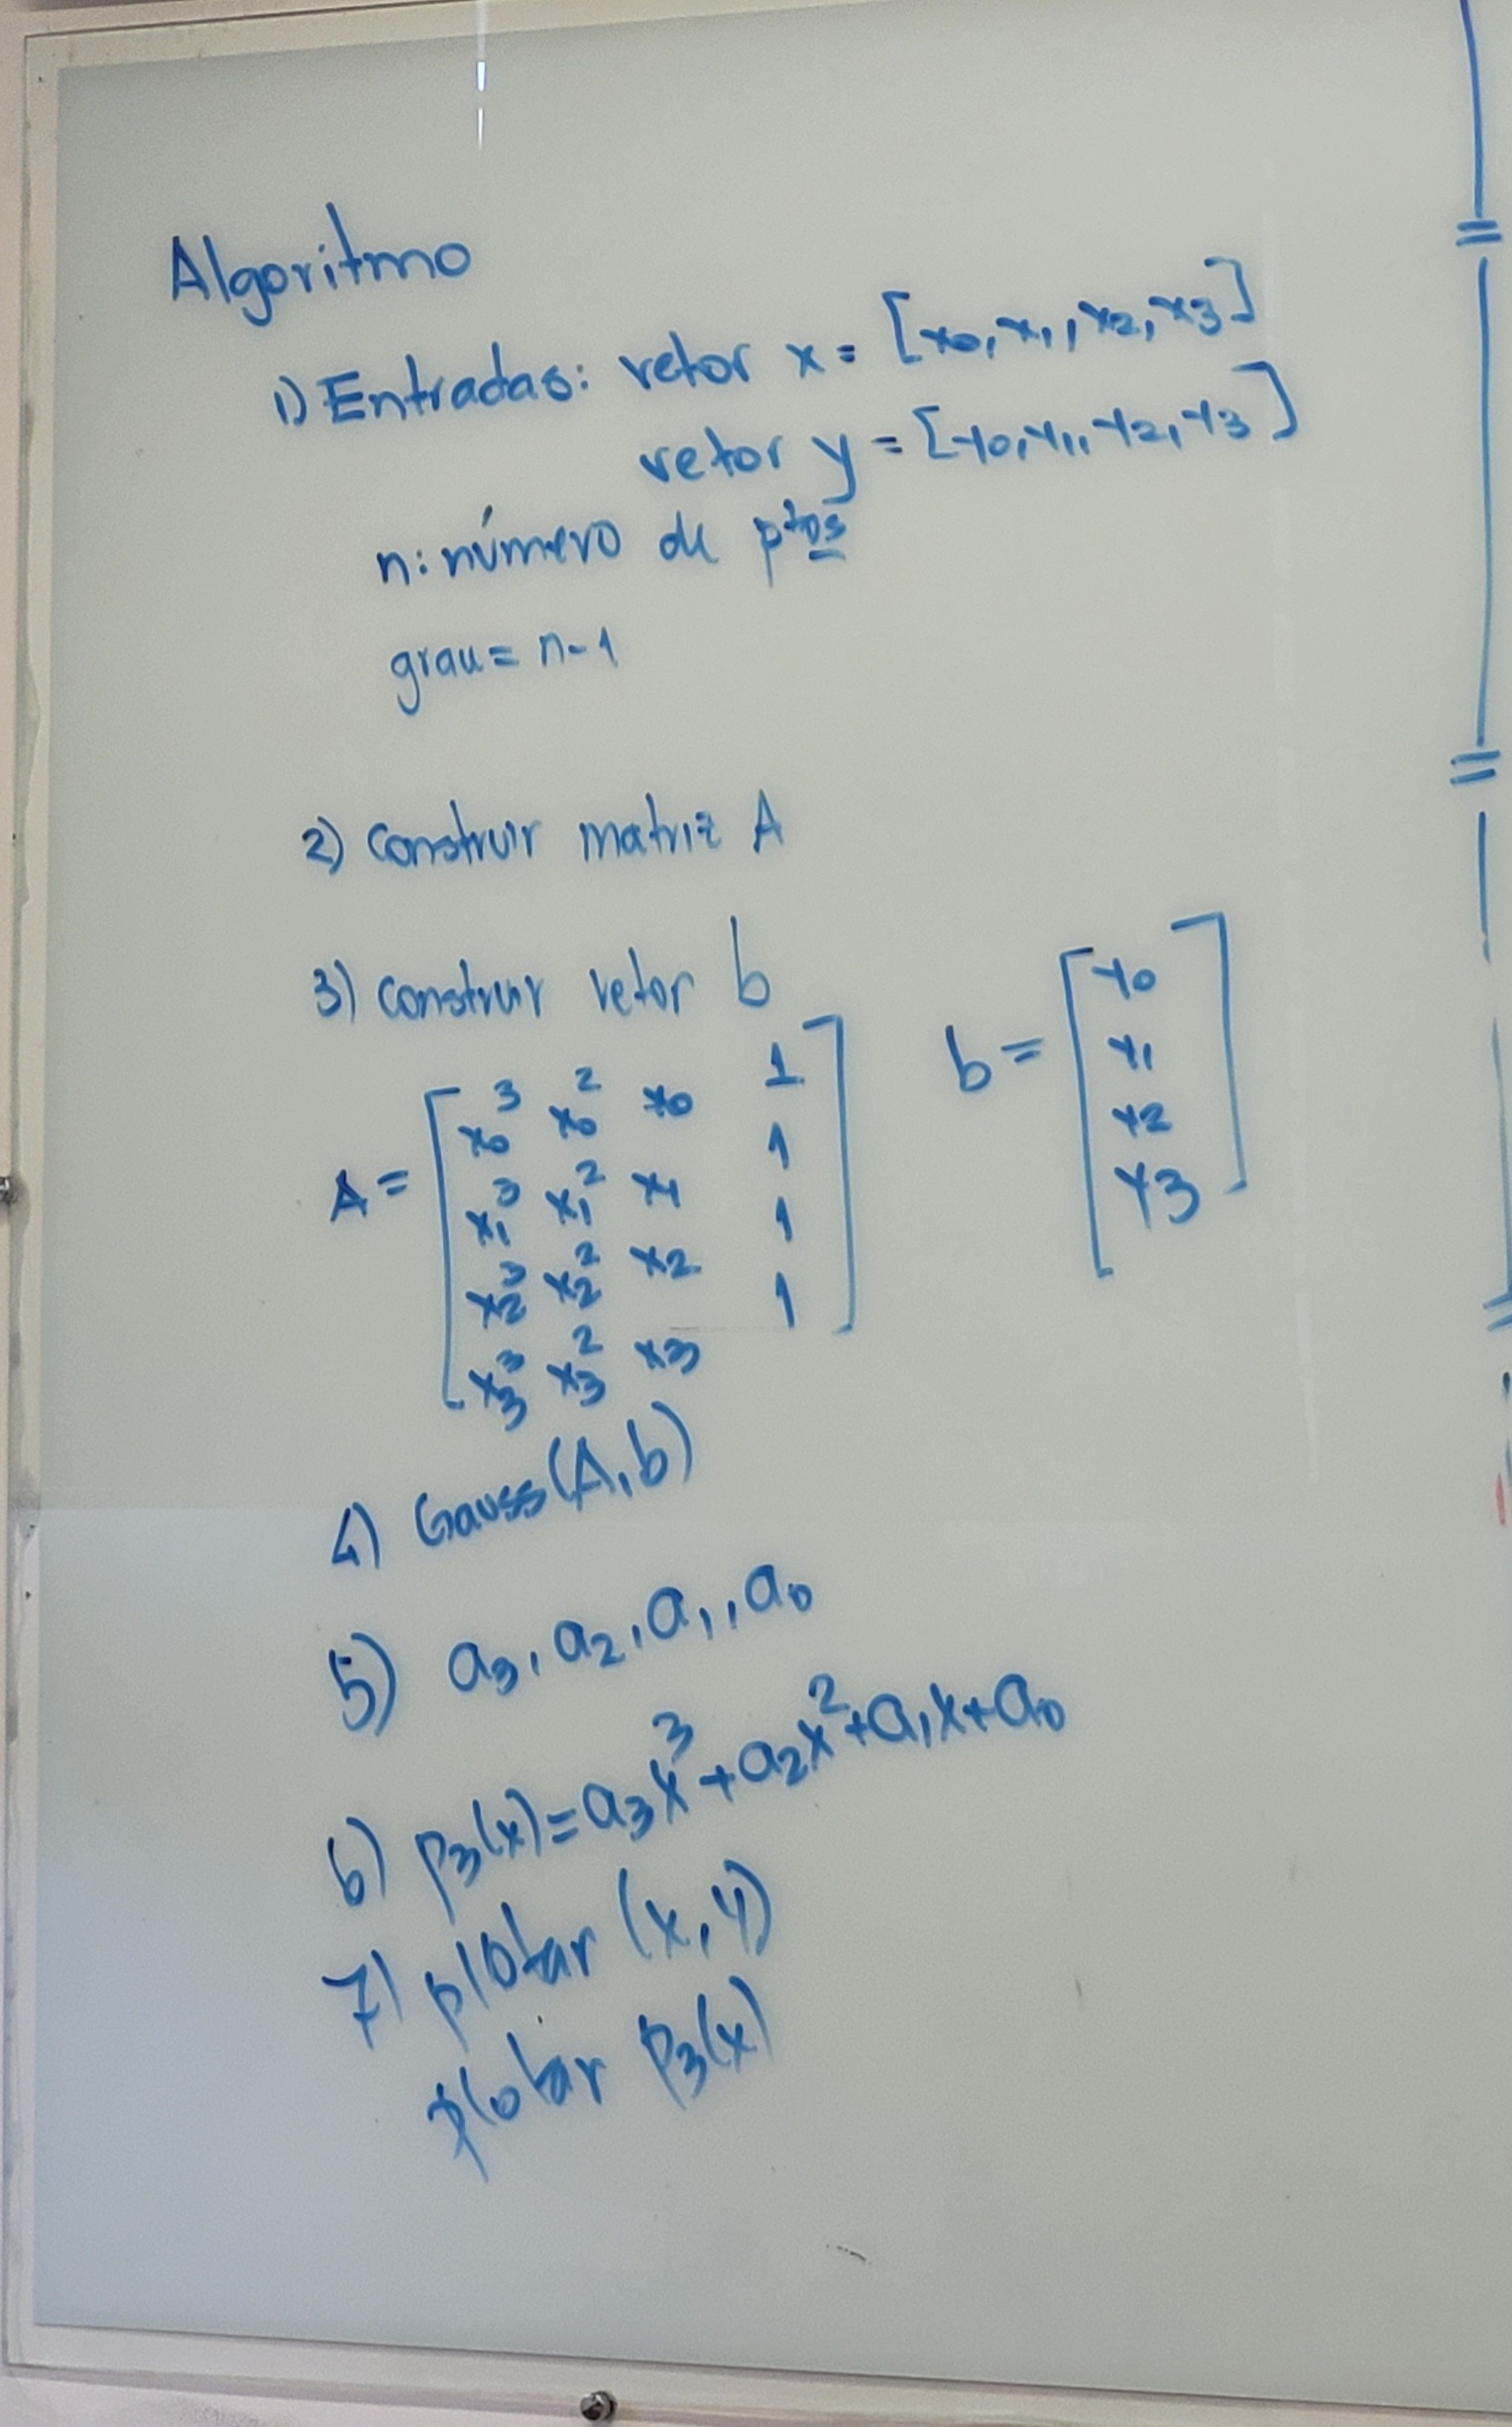 Algoritmo
1) Entradas: vetor x = [x0, x1, x2, x3]
vetor y = [y0, y1, y2, y3]
n: número de ptos
grau = n-1
2) Construir matriz A
3) Construir vetor b
A = [x0³ x0² x0 1
x1³ x1² x1 1
x2³ x2² x2 1
x3³ x3² x3 1]
b = [y0
y1
y2
y3]
4) Gauss(A,b)
5) a3, a2, a1, a0
6) P3(x) = a3x³ + a2x² + a1x + a0
7) plotar (x,y)
plotar P3(x)